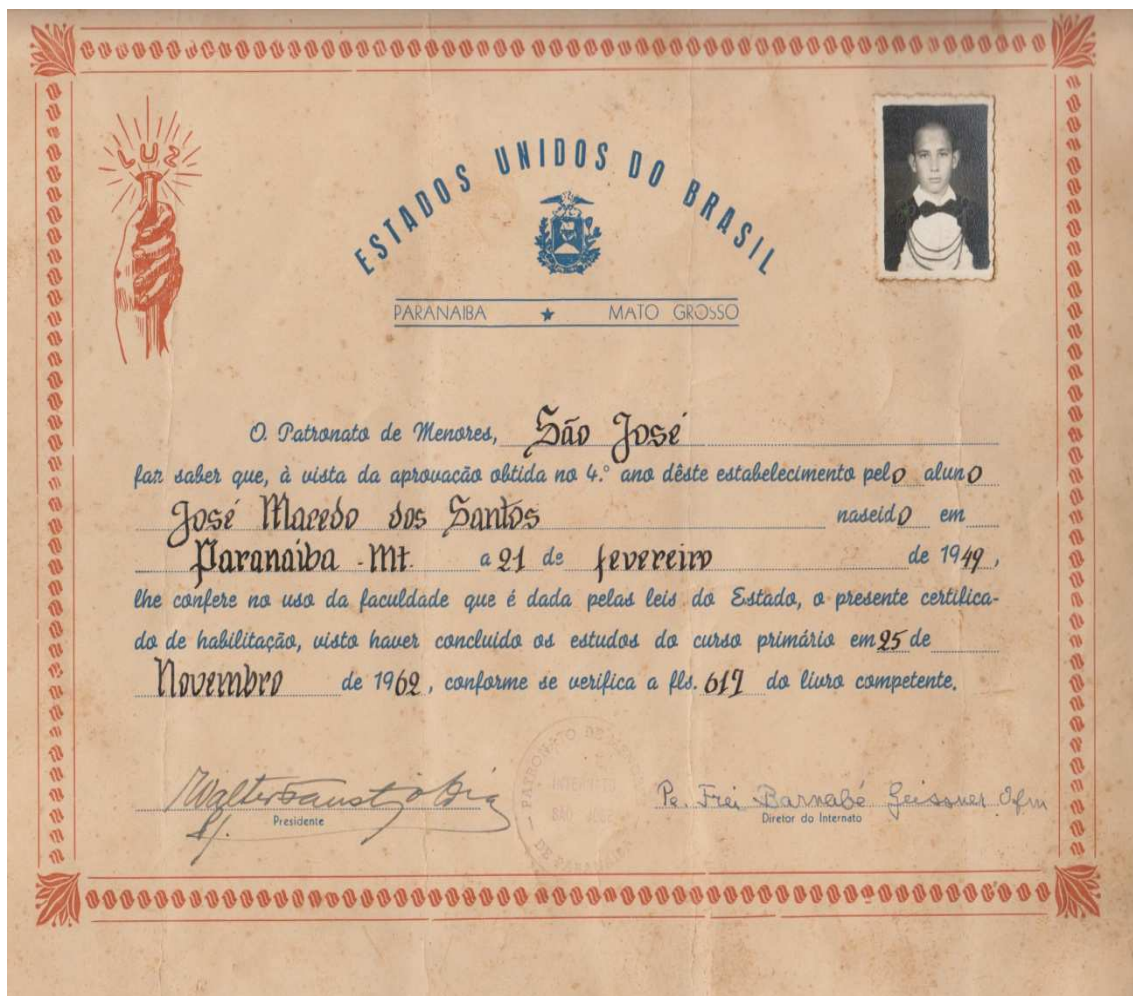 LUZ
ESTADOS UNIDOS DO BRASIL
PARANAIBA ★ MATO GROSSO
O Patronato de Menores, São José
faz saber que, à vista da aprovacão obtida no 4.º ano dêste estabelecimento pelo aluno
José Macedo dos Santos nascido em
Paranaíba - Mt. a 21 de fevereiro de 1949,
lhe confere no uso da faculdade que é dada pelas leis do Estado, o presente certifica-
do de habilitação, visto haver concluido os estudos do curso primário em 25 de
Novembro de 1962, conforme se verifica a fls. 617 do livro competente.
Pe. Frei Barnabé Geissner Ofm
Presidente
Diretor do Internato
PATRONATO DE
INTERNATO
SÃO JOSÉ
DE PARANAIBA